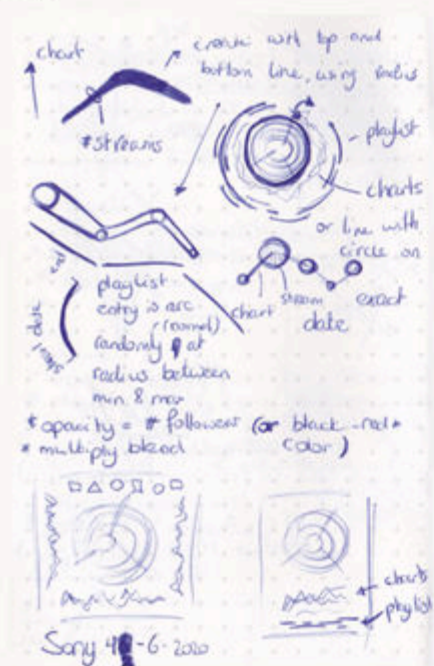 chart
create with top and
bottom line, using radius
# streams
playlist
charts
or line with
circle on
chart
stream
exact
date
start date
end
playlist
entry is arc
(normal)
randomly at
radius between
min & max
* opacity = # followers (or black-red *
* multiply blend color)
charts
playlist
Sony 4 -6-2020